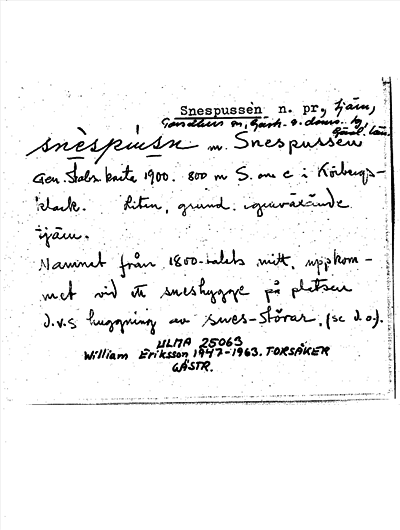 Snespussen n. pr., tjärn,
Torsåkers sn, Gästr. ö. doms. hg,
Gävl. län.
snèspusn m. Snespussen
Gen. Stabs karta 1900. 800 m S. om e i Körbergs-
klack. Liten, grund, igenväxande
tjärn.
Namnet från 1800-talets mitt, uppkom-
met vid ett sneshygge på platsen
d.v.s huggning av snes-störar, (se d.o.).
ULMA 25063
William Eriksson 1947-1963. TORSÅKER
GÄSTR.